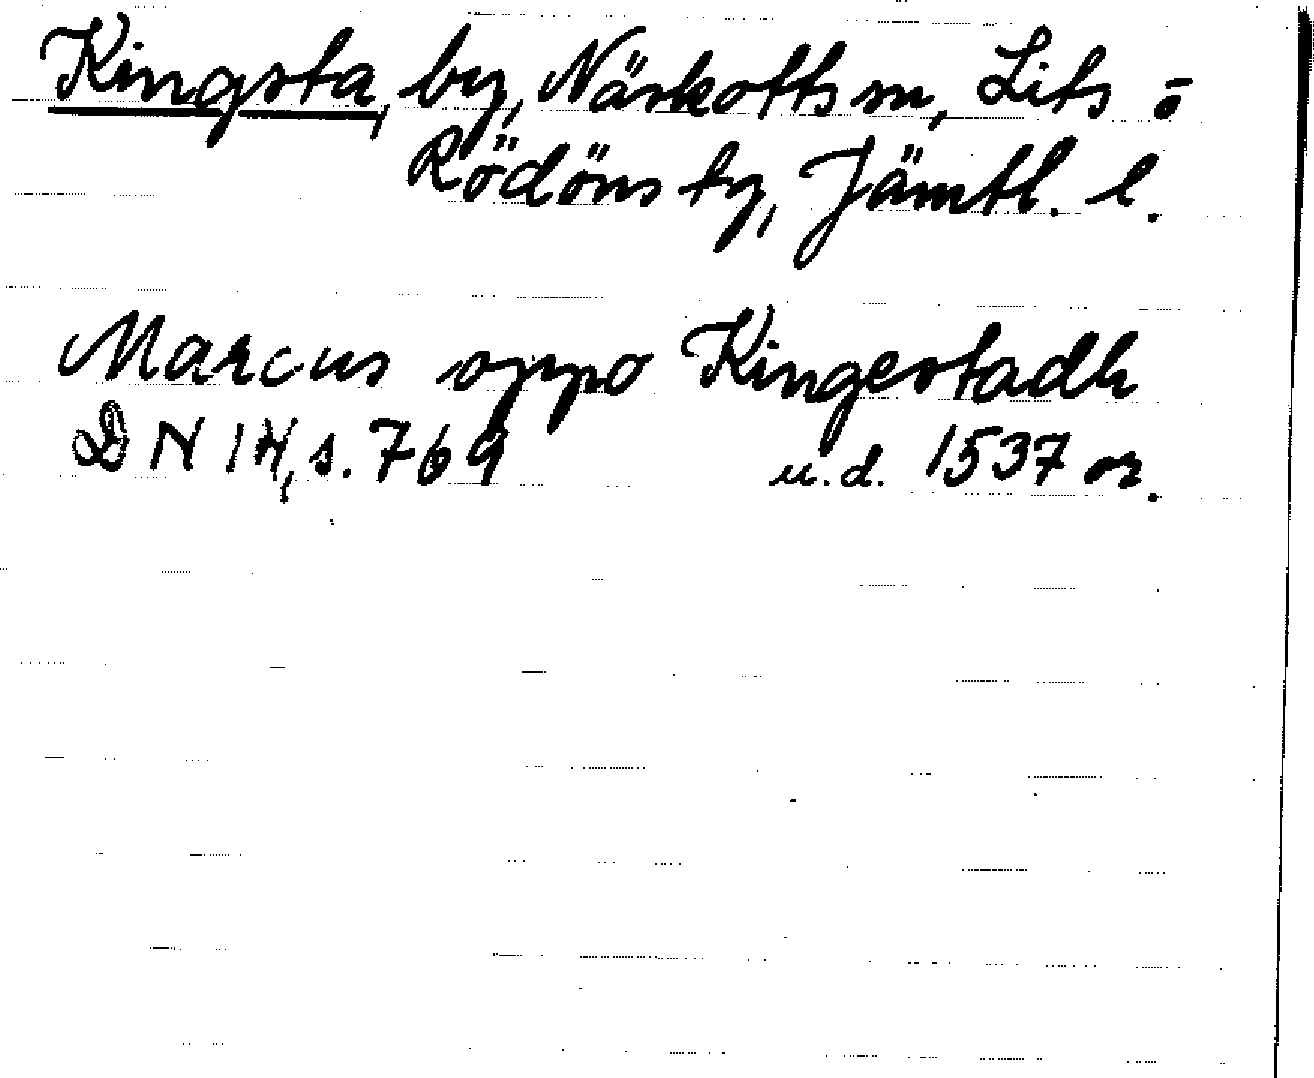 Kingsta, by, Näskotts sn, Lits o
Rödöns tg, Jämtl. l.
Marcus oppo Kingestadh
DN 14, s. 769 u.d. 1537 or.